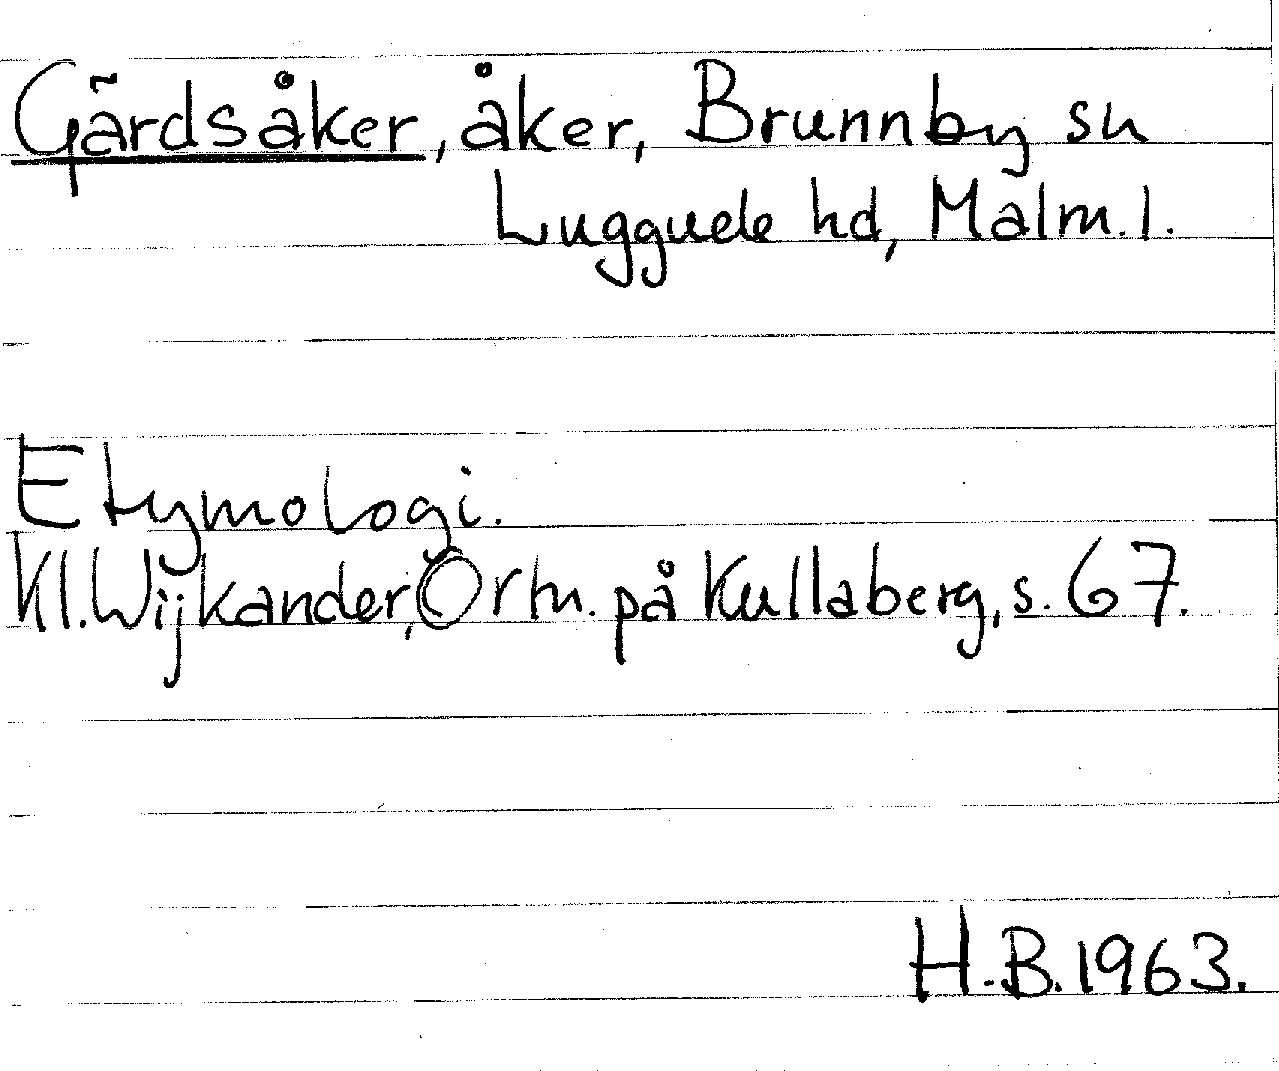 Gärdsåker, åker, Brunnby sn
Luggude hd, Malm. l.
Etymologi.
Kl. Wijkander, Ortn. på Kullaberg, s. 67.
H.B. 1963.